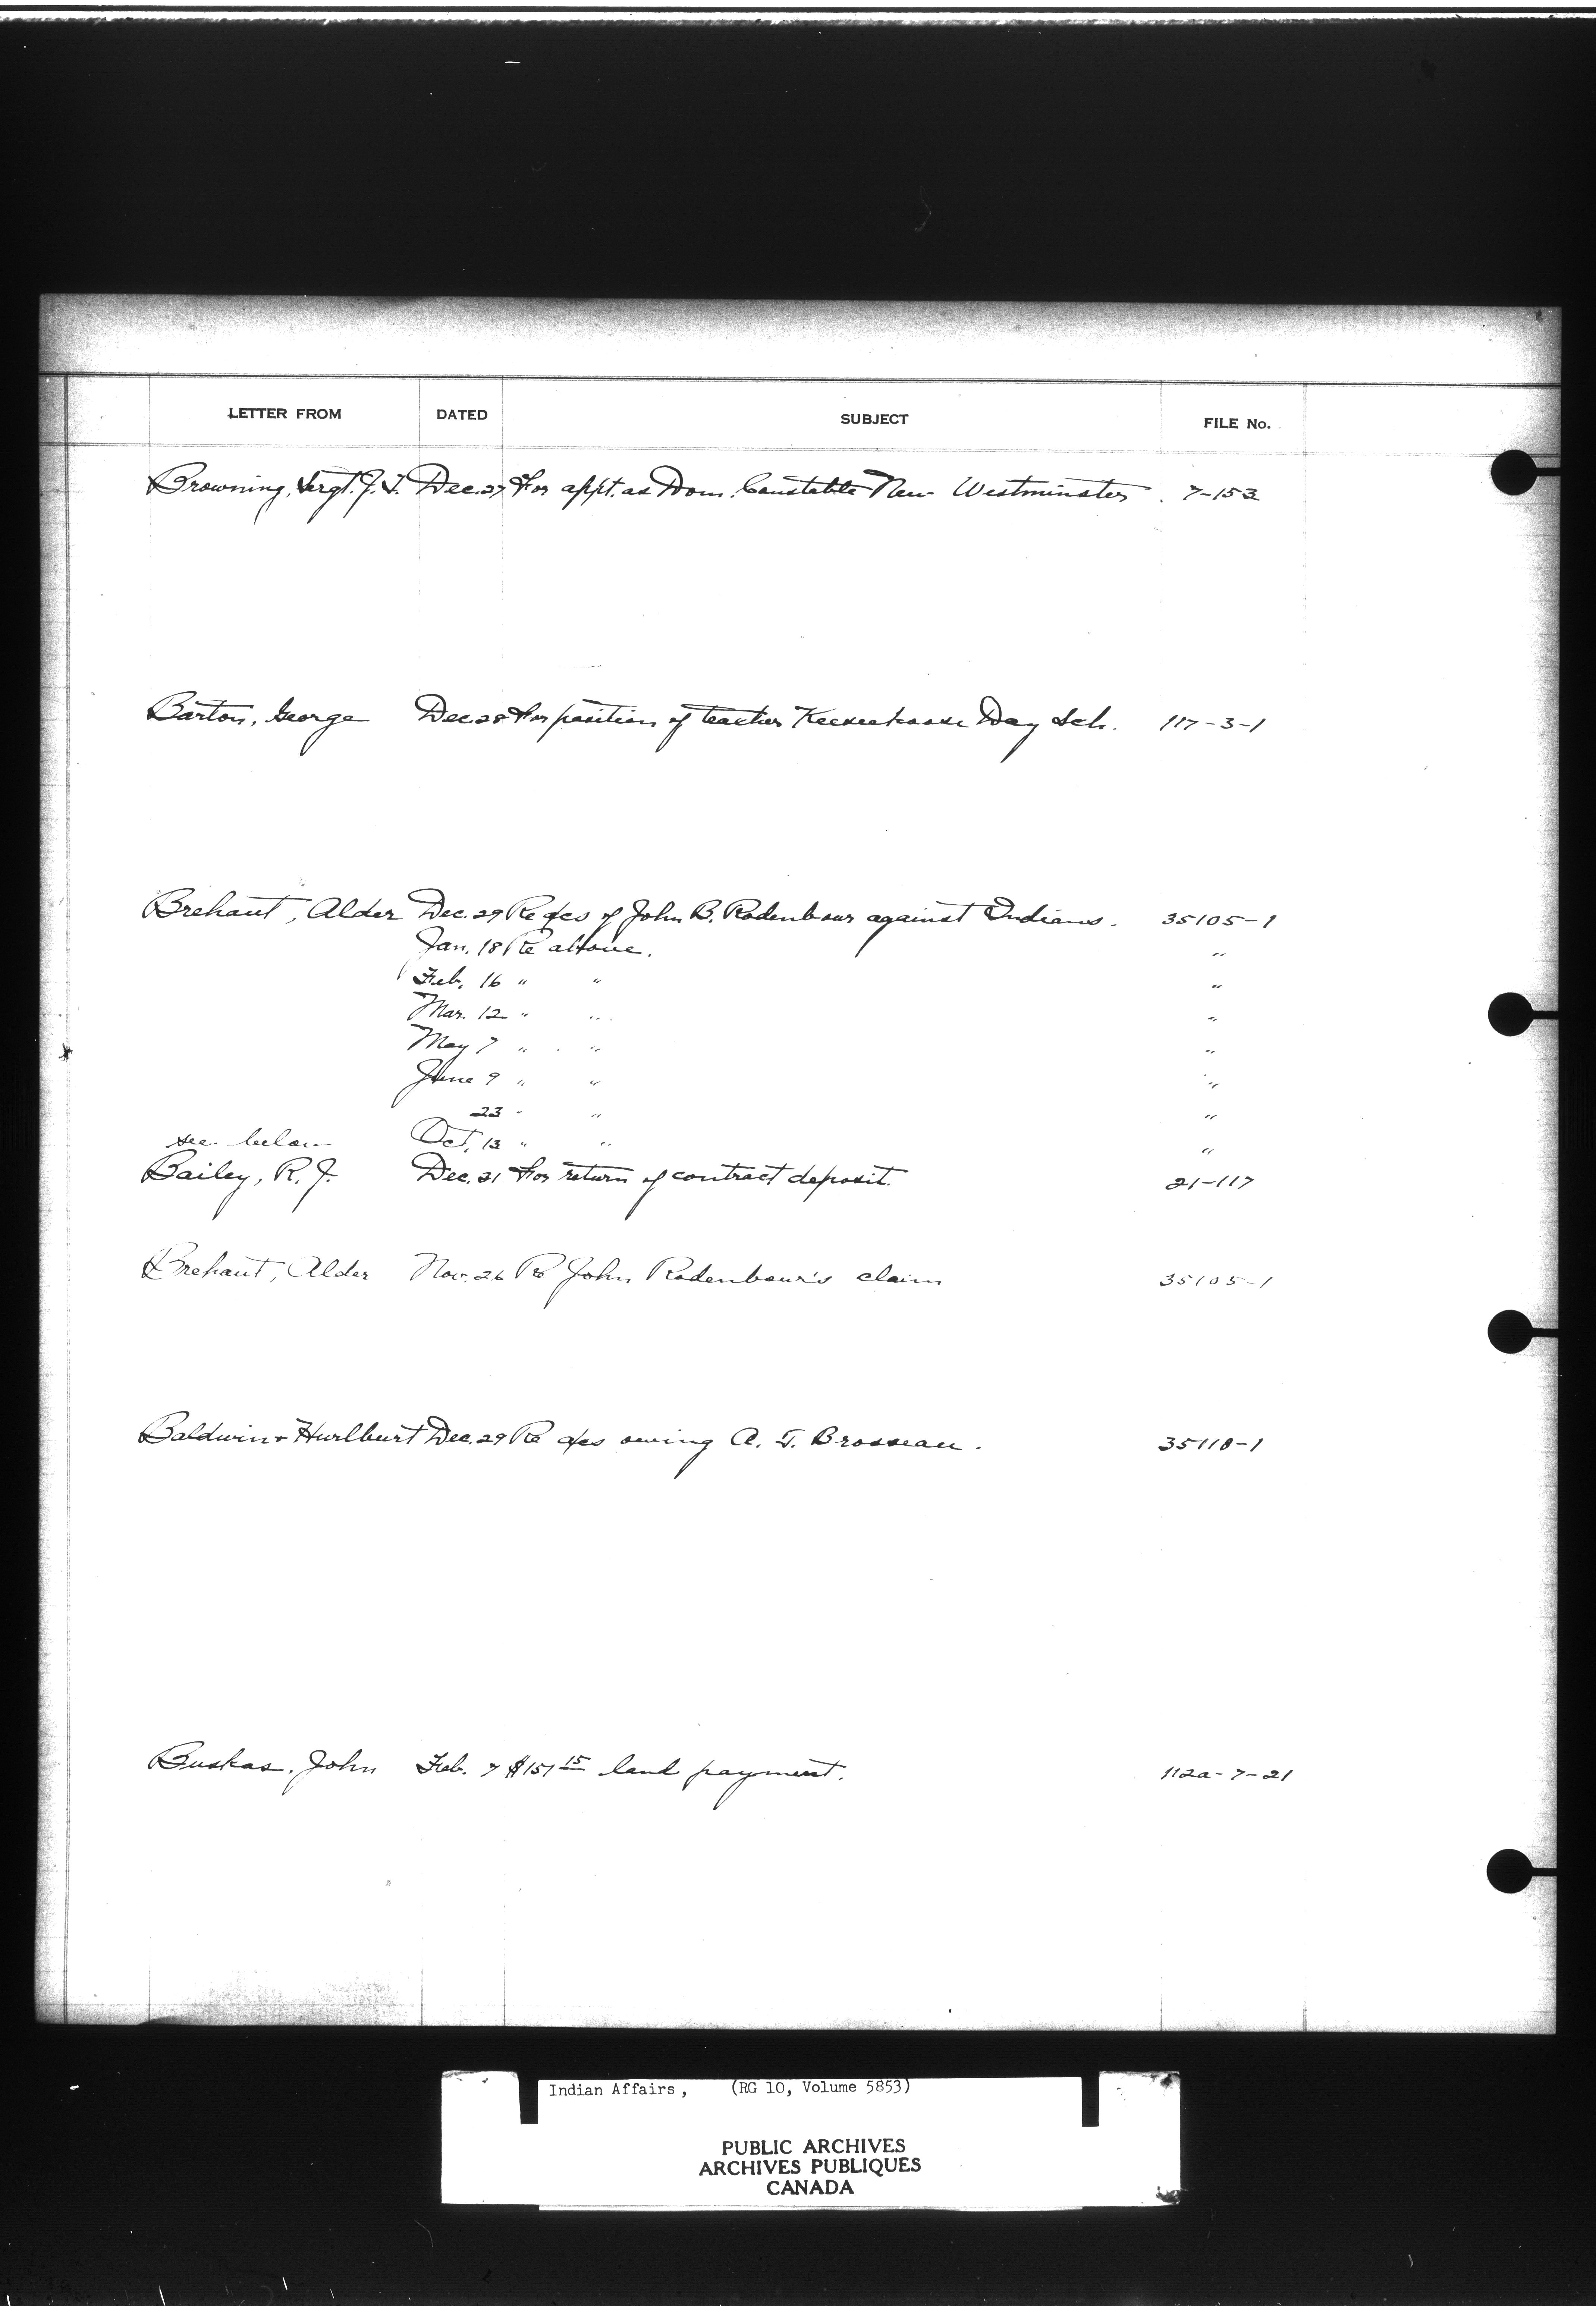 LETTER FROM DATED SUBJECT FILE No.
Browning, Sergt. J. T. Dec. 27 For appt. as Dom. Constable New Westminster 7-153
Barton, George Dec. 28 For position of teacher Day Sch. 117-3-1
Brehaut, Alder Dec. 29 Re a/cs of John B. Rodenbour against Indians. 35105-1
Jan. 18 Re above. "
Feb. 16 " " "
Mar. 12 " " "
May 7 " " "
June 9 " " "
23 " " "
see below Oct. 13 " " "
Bailey, R. J. Dec. 21 For return of contract deposit. 21-117
Brehaut, Alder Nov. 26 Re John Rodenbour's claim 35105-1
Baldwin & Hurlburt Dec. 29 Re a/cs owing A. T. Brosseau. 35118-1
Buskas, John Feb. 7 $151 15 land payment. 112a-7-21
Indian Affairs, (RG 10, Volume 5853)
PUBLIC ARCHIVES
ARCHIVES PUBLIQUES
CANADA